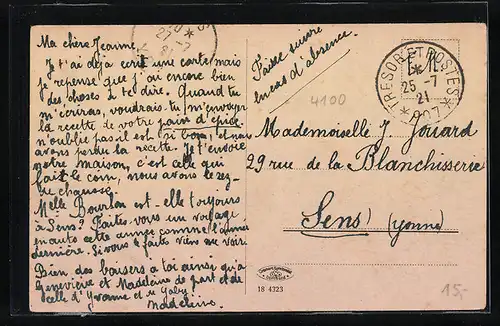 Ma chère Jeanne,
Je t'ai déjà écrit une carte mais
je repense que j'ai encore bien
des choses à te dire. Quand tu
m'écriras, voudrais-tu m'envoyer
la recette de votre pain d'épice
n'oublie pas il est si bon, et nous
avons perdu la recette. Je t'envoie
notre maison, c'est celle qui
fait le coin, nous avons le rez-
de chaussé.
Melle Bourbon est-elle toujours
à Sens? Faites vous un voyage
en auto cette année comme l'année
dernière. Si vous le faites viens me voir
Bien des baisers a toi ainsi qu'à
Geneviève et Madeleine de part et de
celle d'Yvonne et de Gaby.
Madeleine
Faire suivre
en cas d'absence.
4100
F.M.
TRESOR ET POSTES
25-7
21
* 207 *
Mademoiselle J Jouard
29 rue de la Blanchisserie
Sens (yonne)
18 4323
15,-